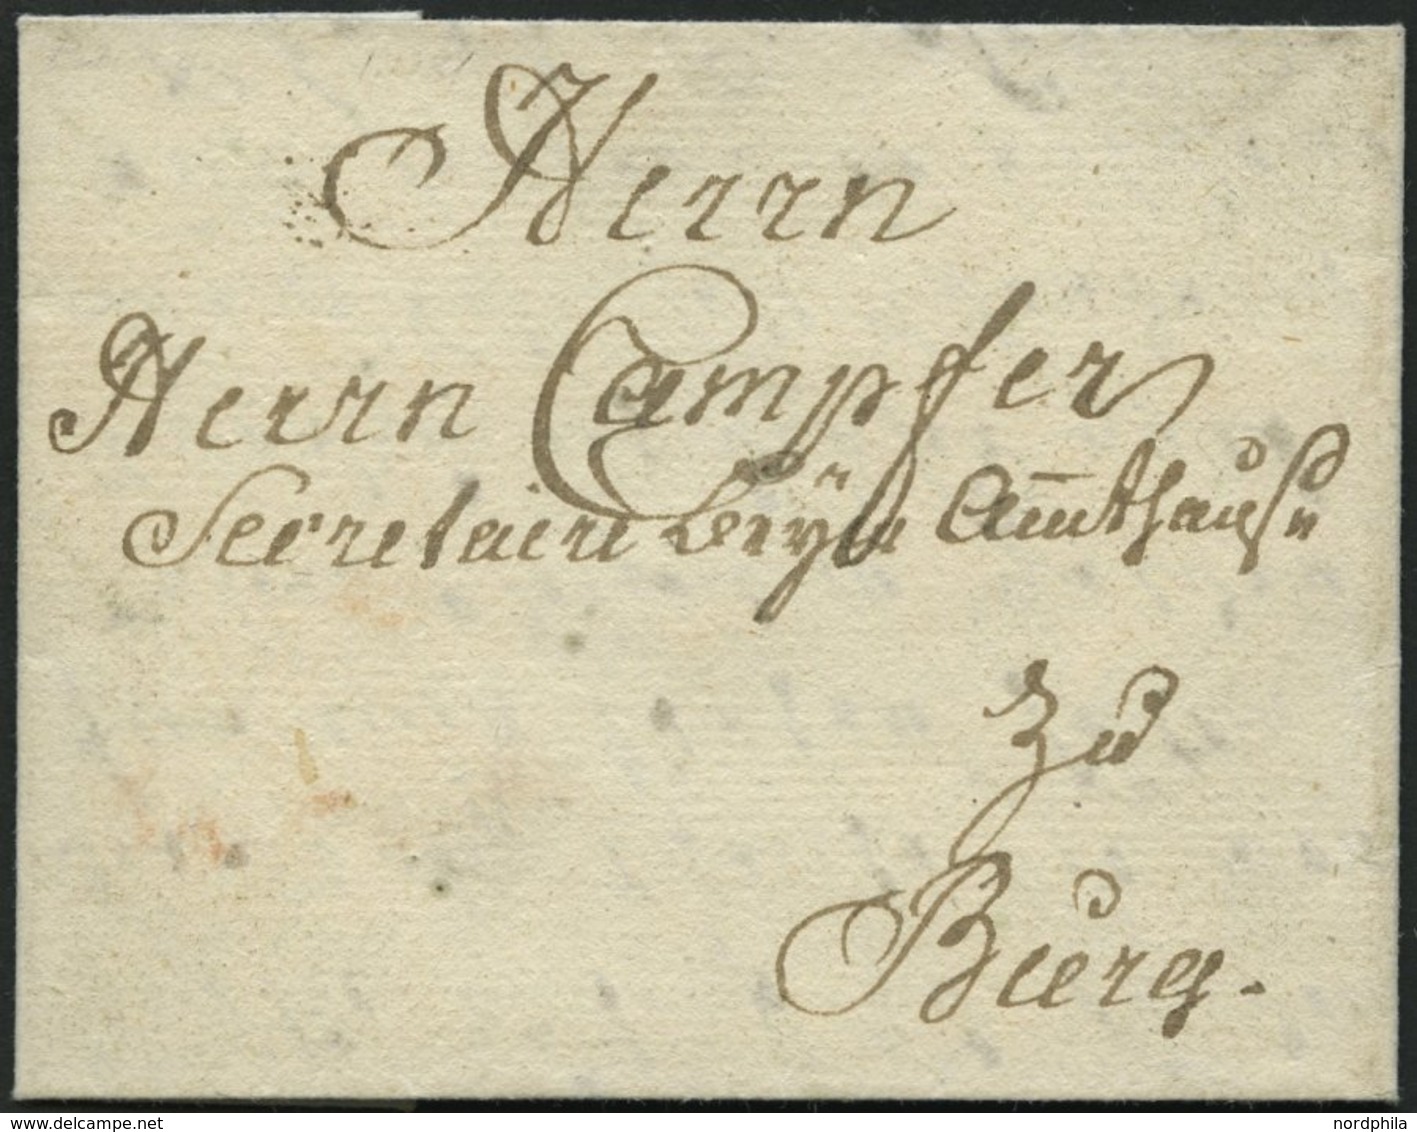 Herrn
Herrn Campfer
Secretaire beÿm Amthauße
zu
Burg.
nordphila